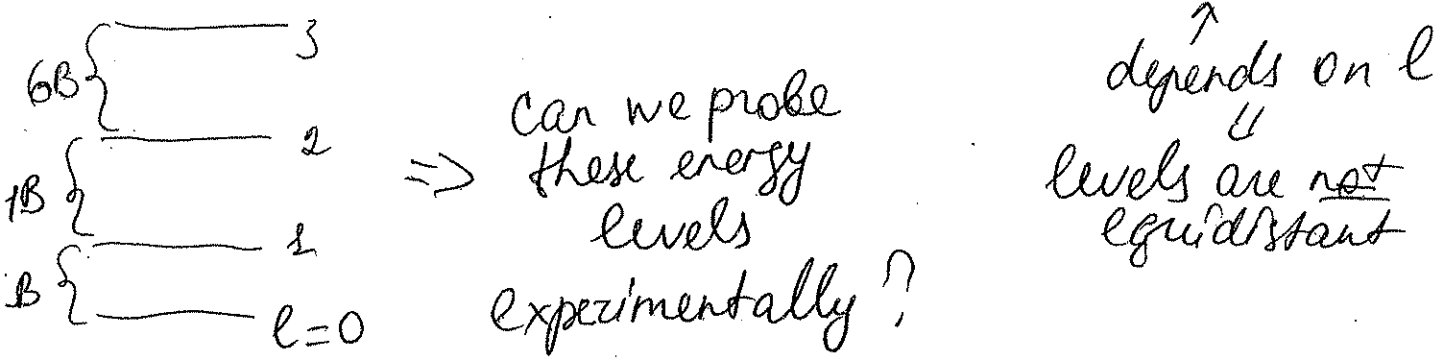 3
6B
2
4B
1
B
l=0
=> can we probe
these energy
levels
experimentally?
↑
depends on l
⇓
levels are not
equidistant